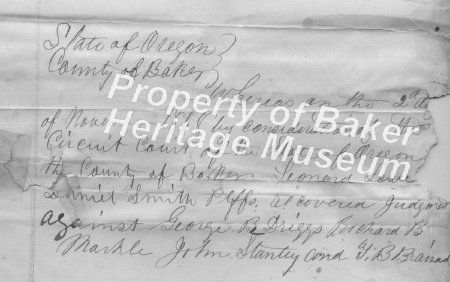 State of Oregon
County of Baker
Whereas on the 2d
of by
Circuit Court of the of Oregon
the County of Baker Leonard
Daniel Smith Plffs. recovered Judgmen
against George B Driggs Richard B
Markle John Stanley and T. B Brainad
Property of Baker
Heritage Museum